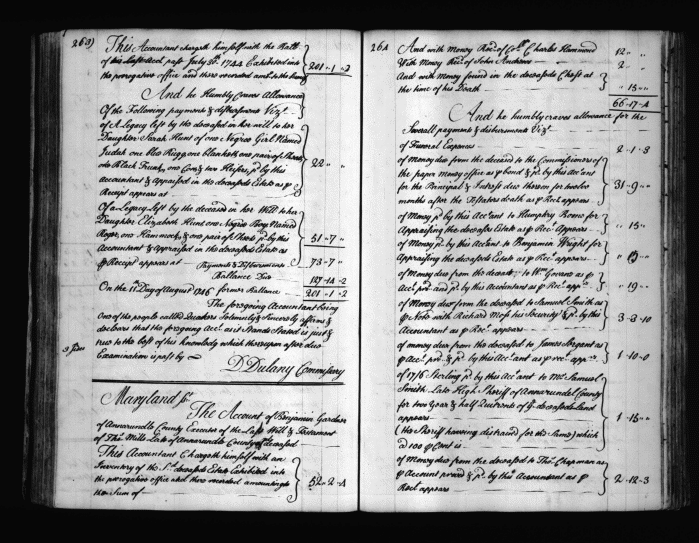 263)
This Accountant chargeth himself with the Ball.
of his last Accot. past July 31st. 1744 Exhibited into
the prerogative office and there recorded amots. to the Sum of 201 „ 1 „ 2
And he Humbly Craves Allowance
Of the Following payments & disbursements Vizt.
of A Legacy left by the deceased in her will to her
Daughter Sarah Hunt of one Negroe Girl Named
Judah one Bed Rugg one blanket, one pair of Sheets,
one Black Trunk, one Cow & two Heifers, pd. by this
accountant & Appraised in the deceaseds Estate as ⅌
Receipt appears at 22 „ „
Of a Legacy left by the deceased in her Will to her
Daughter Elizabeth Hunt one Negroe Boy Named
Roger, one Hammock, & one pair of Sheets pd. by this
Accountant & Appraised in the deceaseds Estate as 51 - 7 „
⅌ Receipt appears at Payments & Disbursements 73 - 7 „
Ballance Due 127 - 14 - 2
On the 11th Day of August 1746 former Ballance 201 - 1 - 2
The foregoing Accountant being
One of the people called Quakers Solemnly & Sincerely affirms &
declares that the foregoing Acct. as it Stands Stated is just &
true to the best of his Knowledge which thereupon after due
Examination is past by
D Dulany Commissary
3 Sides
Maryland ss.
The Account of Benjamin Gardner
of Annarundel County Executor of the Last Will & Testament
of Thos. Mills Late of Annarundle County deceased
This Accountant Chargeth himself with an
Inventory of the Sd. deceaseds Estate Exhibited into
the prerogative office and there recorded amounting to
the Sum of 52 „ 2 - 4
264
And with Money Recd. of Coll. Charles Hammond 12 „ „
With Money Recd. of John Andrews 2 „ „
And with money found in the deceaseds Chest at
the time of his Death „ 15 „
66 - 17 - 4
And he humbly craves allowance for the
Severall payments & disbursements Vizt.
of Funeral Expences 2 - 1 - 3
of Money due from the deceased to the Commissioners of
the paper money office as ⅌ bond & pd. by this accant
for the Principal & Intrest due thereon for twelve
months after the Testators death as ⅌ Rect. appears 31 - 9 „
of Money pd. by this Accant to Humphry Boone for
Appraising the deceaseds Estate as ⅌ Rec. Appears „ 15 „
of Money pd. by this Accant to Benjamin Wright for
Appraising the deceaseds Estate as ⅌ Rect. appears „ 15 „
of Money due from the deceasd. to Wm. Govane as ⅌
Acct. prd. and pd. by this Accountant as ⅌ Rect. appears „ 19 „
of Money due from the deceased to Samuel Smith as
⅌ Note with Richard Moss his Security & pd. by this
Accountant as ⅌ Rect. appears 3 - 3 - 10
of money due from the deceased to James Sergant as
⅌ Acct. prd. & pd. by this Accant as ⅌ rect. appears 1 - 10 - 0
of 17/6 Sterling pd. by this Accant to Mr. Samuel
Smith Late High Sheriff of Annarundel County
for two Year & half Quitrents of ye. deceaseds Land
appears 1 - 15 „
(the Sheriff having distraind for the Same) which
a 100 ⅌ Cent is
of Money due from the deceased to Thos. Chapman as
⅌ Account proved & pd. by this Accountant as ⅌
Rect appears 2 - 12 - 3